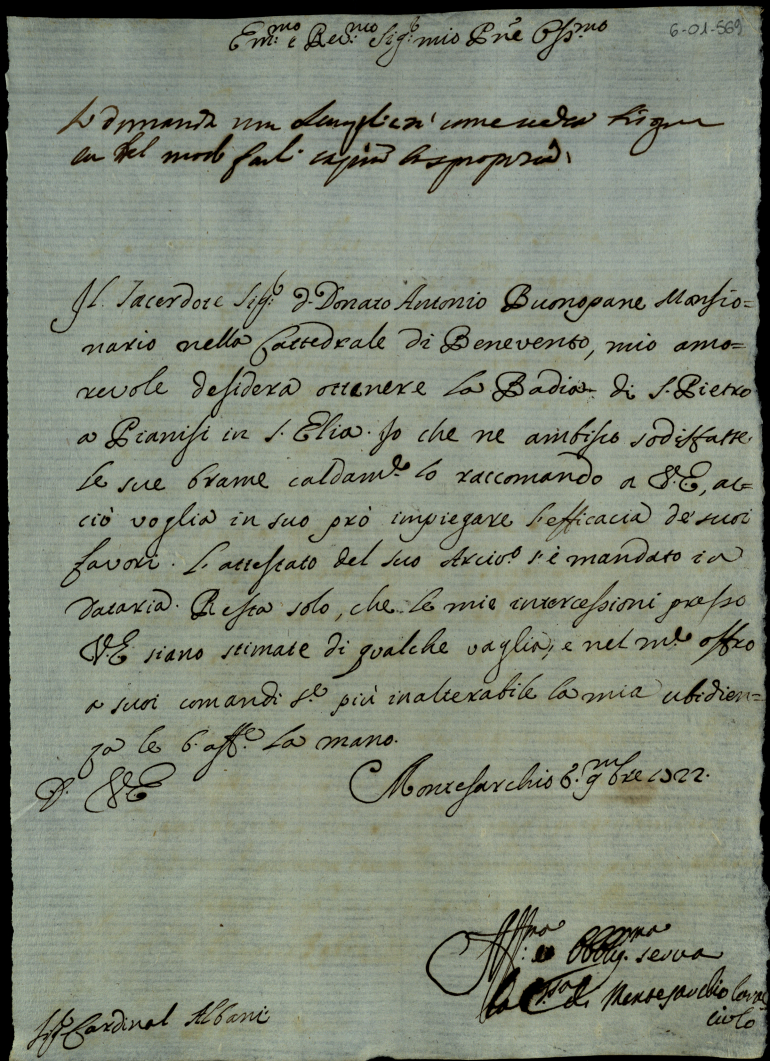 6-01-569
Em:mo e Rev:mo Sig:r mio P̃ne Oss:mo
La domanda non come
del modo
Il Sacerdote Sig:r D. Donato Antonio Buonopane Mansio=
nario nella Cattedrale di Benevento, mio amo=
revole desidera ottenere la Badia di S. Pietro
a Pianisi in S. Elia. Io che ne ambisco sodisfatte
le sue brame caldam:te lo raccomando a V.E., ac=
ciò voglia in suo prò impiegare l'efficacia de' suoi
favori. L'attestato del suo Arciv:o s'è mandato in
Dataria. Resta solo, che le mie intercessioni presso
V.E. siano stimate di qualche vaglia, e nel m:e offro
a suoi comandi s:e più inalterabile la mia ubidien=
za le b. aff:e la mano.
D. V.E. Montesarchio 6. 9mbre 1722.
Aff:ma e Obblig:ma serva
la P:ssa di Montesarchio Carac
ciolo
Sig:r Cardinal Albani